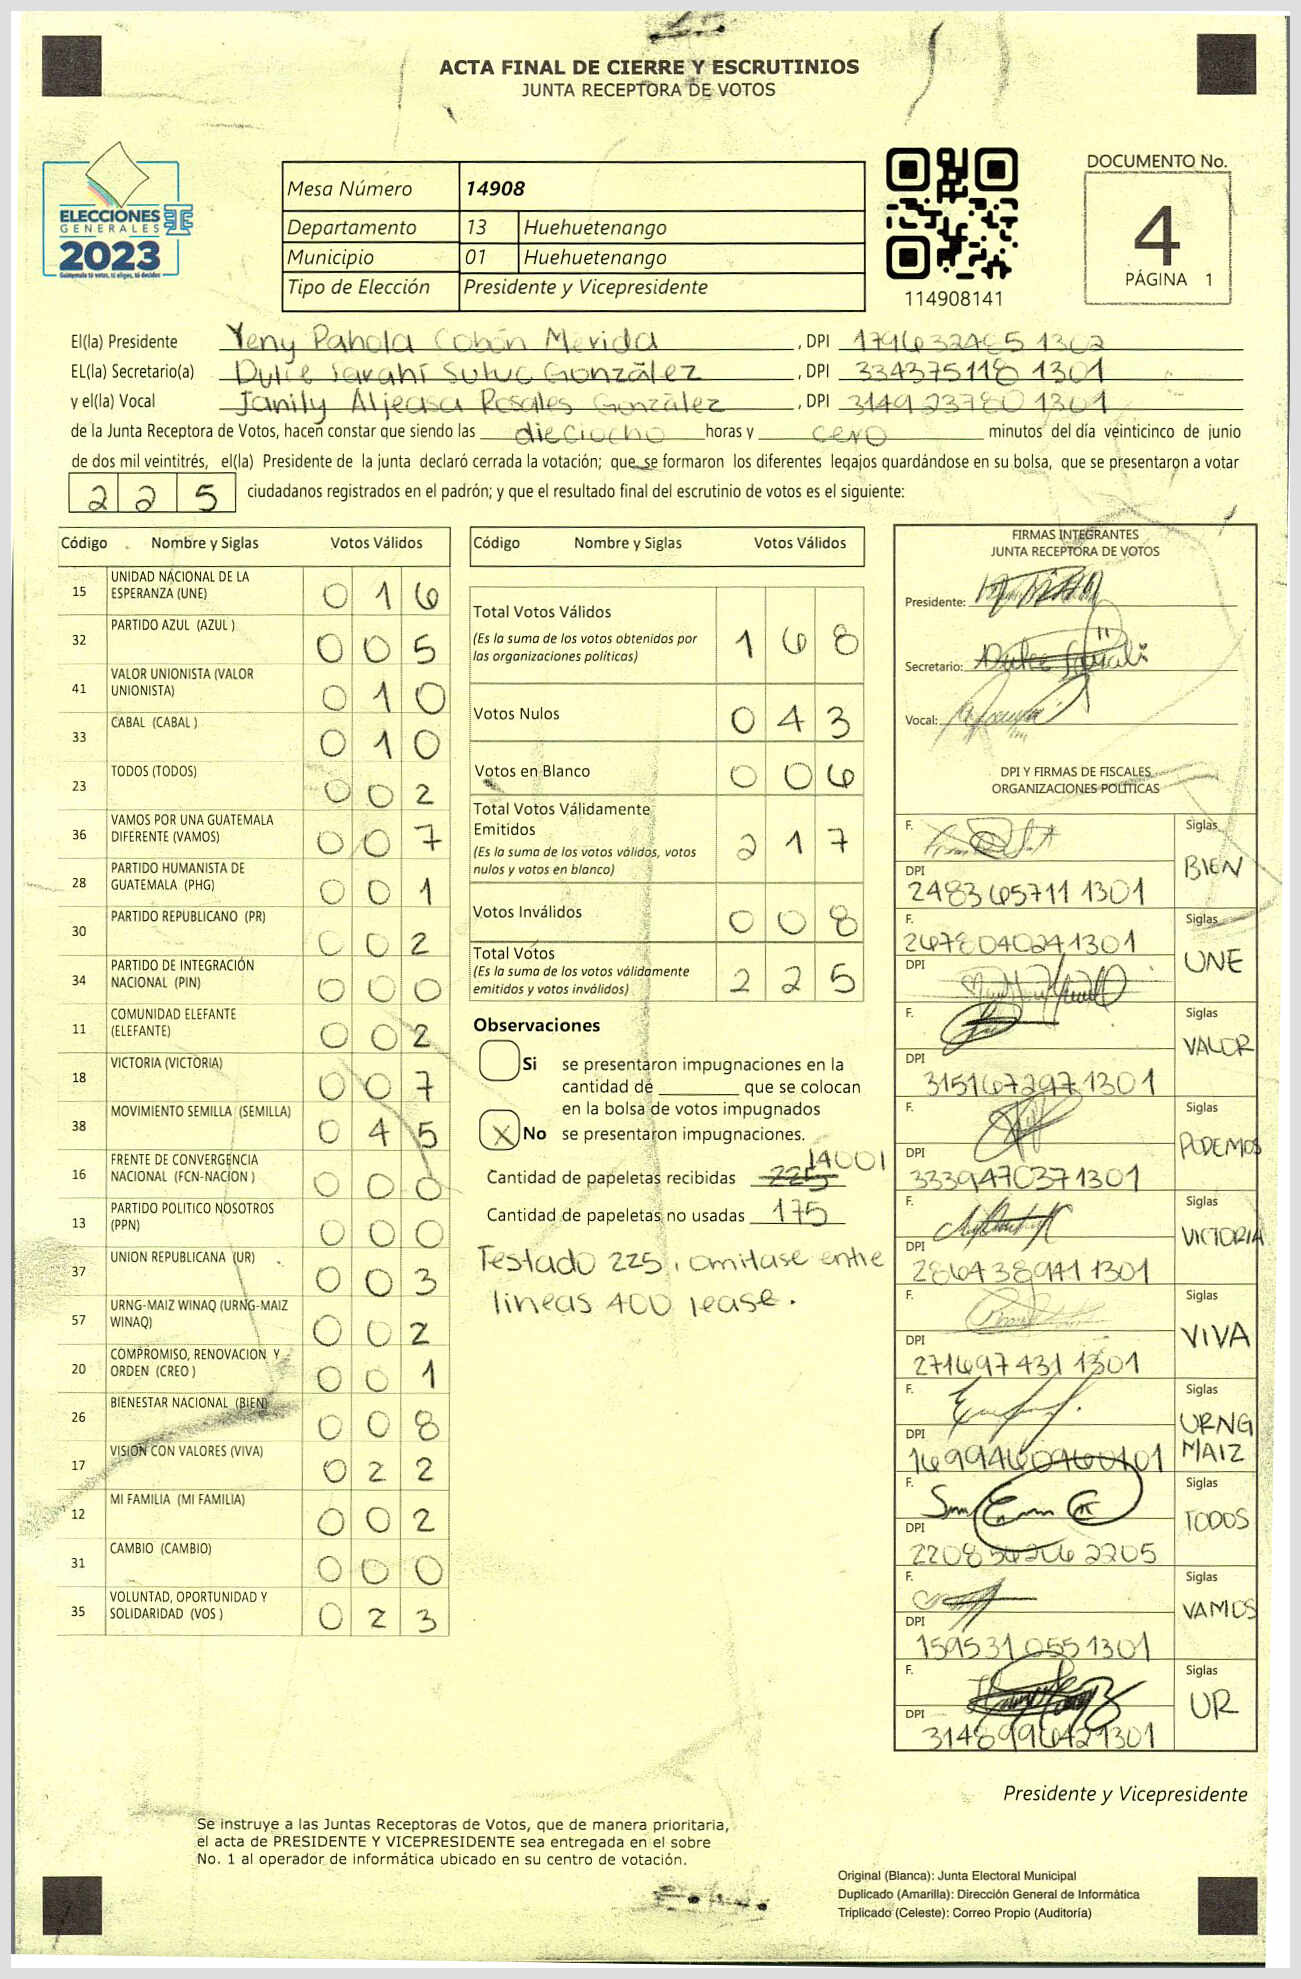 ACTA FINAL DE CIERRE Y ESCRUTINIOS
JUNTA RECEPTORA DE VOTOS
ELECCIONES
GENERALES
2023
Guatemala tú votas, tú eliges, tú decides
Mesa Número 14908
Departamento 13 Huehuetenango
Municipio 01 Huehuetenango
Tipo de Elección Presidente y Vicepresidente
114908141
DOCUMENTO No.
4
PÁGINA 1
El(la) Presidente Yeny Pahola Cobón Merida , DPI 1794632485 1302
EL(la) Secretario(a) Dulce Sarahí Sutuc González , DPI 334375118 1301
y el(la) Vocal Janily Aljeasa Rosales González , DPI 314923780 1301
de la Junta Receptora de Votos, hacen constar que siendo las dieciocho horas y cero minutos del día veinticinco de junio
de dos mil veintitrés, el(la) Presidente de la junta declaró cerrada la votación; que se formaron los diferentes legajos guardándose en su bolsa, que se presentaron a votar
225 ciudadanos registrados en el padrón; y que el resultado final del escrutinio de votos es el siguiente:
Código Nombre y Siglas Votos Válidos
15 UNIDAD NACIONAL DE LA ESPERANZA (UNE) 016
32 PARTIDO AZUL (AZUL ) 005
41 VALOR UNIONISTA (VALOR UNIONISTA) 010
33 CABAL (CABAL ) 010
23 TODOS (TODOS) 002
36 VAMOS POR UNA GUATEMALA DIFERENTE (VAMOS) 007
28 PARTIDO HUMANISTA DE GUATEMALA (PHG) 001
30 PARTIDO REPUBLICANO (PR) 002
34 PARTIDO DE INTEGRACIÓN NACIONAL (PIN) 000
11 COMUNIDAD ELEFANTE (ELEFANTE) 002
18 VICTORIA (VICTORIA) 007
38 MOVIMIENTO SEMILLA (SEMILLA) 045
16 FRENTE DE CONVERGENCIA NACIONAL (FCN-NACION ) 000
13 PARTIDO POLITICO NOSOTROS (PPN) 000
37 UNION REPUBLICANA (UR) 003
57 URNG-MAIZ WINAQ (URNG-MAIZ WINAQ) 002
20 COMPROMISO, RENOVACION Y ORDEN (CREO ) 001
26 BIENESTAR NACIONAL (BIEN) 008
17 VISION CON VALORES (VIVA) 022
12 MI FAMILIA (MI FAMILIA) 002
31 CAMBIO (CAMBIO) 000
35 VOLUNTAD, OPORTUNIDAD Y SOLIDARIDAD (VOS ) 023
Código Nombre y Siglas Votos Válidos
Total Votos Válidos 168
(Es la suma de los votos obtenidos por
las organizaciones politicas)
Votos Nulos 043
Votos en Blanco 006
Total Votos Válidamente
Emitidos 217
(Es la suma de los votos válidos, votos
nulos y votos en blanco)
Votos Inválidos 008
Total Votos 225
(Es la suma de los votos válidamente
emitidos y votos inválidos)
Observaciones
Si se presentaron impugnaciones en la
cantidad de que se colocan
en la bolsa de votos impugnados
X No se presentaron impugnaciones.
Cantidad de papeletas recibidas 225
Cantidad de papeletas no usadas 175
Testado 225, omitase entre
líneas 400 lease.
FIRMAS INTEGRANTES
JUNTA RECEPTORA DE VOTOS
Presidente:
Secretario:
Vocal:
DPI Y FIRMAS DE FISCALES
ORGANIZACIONES POLÍTICAS
F. Siglas
BIEN
DPI
2483657111301
F. Siglas
2678040241301
UNE
DPI
F. Siglas
VALOR
DPI
3151672971301
F. Siglas
PODEMOS
DPI
3339470371301
F. Siglas
VICTORIA
DPI
2864389411301
F. Siglas
VIVA
DPI
2716974311301
F. Siglas
URNG
MAIZ
DPI
1699460960101
F. Siglas
TODOS
DPI
2208562062205
F. Siglas
VAMOS
DPI
1595310551301
F. Siglas
UR
DPI
3148996421301
Presidente y Vicepresidente
Se instruye a las Juntas Receptoras de Votos, que de manera prioritaria,
el acta de PRESIDENTE Y VICEPRESIDENTE sea entregada en el sobre
No. 1 al operador de informática ubicado en su centro de votación.
Original (Blanca): Junta Electoral Municipal
Duplicado (Amarilla): Dirección General de Informática
Triplicado (Celeste): Correo Propio (Auditoría)